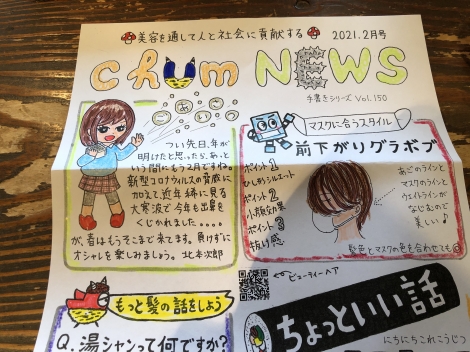 美容を通して人と社会に貢献する
2021.2月号
chum NEWS
手書きシリーズ Vol.150
ごあいさつ
つい先日、年が
明けたと思ったら、あっと
いう間にもう2月ですね。
新型コロナウイルスの脅威に
加えて、近年稀に見る
大寒波で今年も出鼻を
くじかれました。。。。
が、春はもうそこまで来てます。負けずに
オシャレを楽しみましょう。北本次郎
マスクに合うスタイル
前下がりグラボブ
ポイント1
ひし形シルエット
ポイント2
小顔効果
ポイント3
抜け感
あごのラインと
マスクのラインと
ウェイトラインが
なじむので
美しい♪
髪色とマスクの色を合わせても◎
ビューティーヘア
もっと髪の話をしよう
Q.湯シャンって何ですか?
ちょっといい話
にちにちこれこうじつ